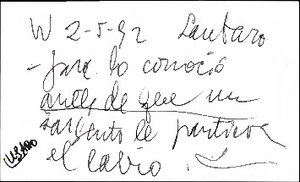 W 2-5-92 Lautaro
- Jara lo conoció
antes de que un
sargento le partiera
el labio.